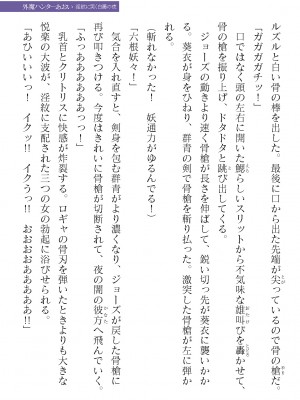 外魔ハンターあおい
ルズルと白い骨の棒を出した。最後に口から出た先端が尖っているので骨の槍だ。
「ガガガガチッ！」
　口ではなく頭の左右に開いた鰓らしいスリットから不気味な雄叫びを轟かせて、
骨の槍を振り上げ、ドタドタと跳び出してくる。
　ジョーズの動きより速く骨槍が長さを伸ばして、鋭い切っ先が葵衣に襲いかか
る。葵衣が身をひねり、群青の剣で骨槍を斬り払った。激突した骨槍が左に弾か
れる。
（斬れなかった！　妖通力がゆるんでる！）
「六根妖々！」
　気合を入れ直すと、剣身を包む群青がより濃くなり、ジョーズが戻した骨槍に
再び叩きつけた。今度はきれいに骨槍が切断されて、夜の闇の彼方へ飛んでいく。
「ふっあああああああっ！」
　乳首とクリトリスに快感が炸裂する。ロギャの骨刃を弾いたときよりも大きな
悦楽の大波が、淫紋に支配された三つの女の勃起に浴びせられる。
「あひいいいっ！　イクッ!!　イクうっ!!　おおおおああああああ!!」